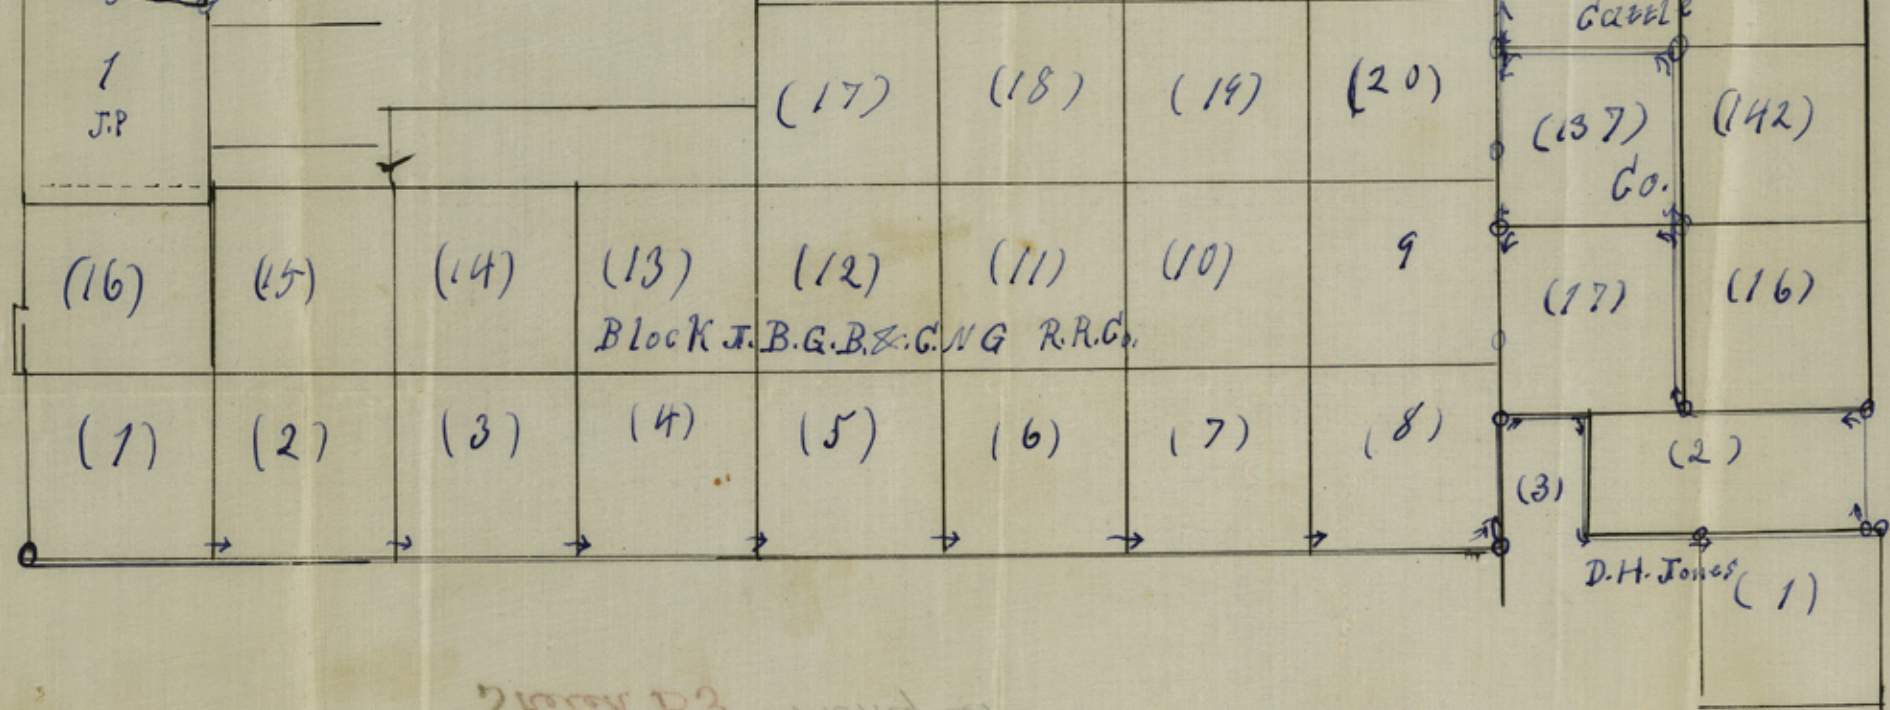 Cattle
1
J.P
(17) (18) (19) (20)
(137) (142)
Co.
(16) (15) (14) (13) (12) (11) (10) 9
(17) (16)
Block J. B.G.B.&.C.N G R.R.Co.
(1) (2) (3) (4) (5) (6) (7) (8)
(2)
(3)
D.H. Jones
(1)